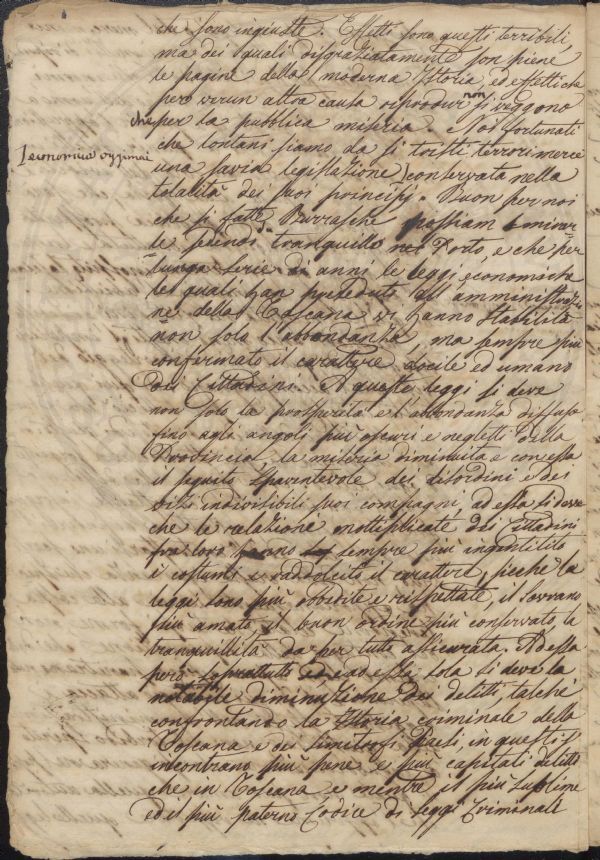 che sono ingiuste. Effetti sono questi terribili,
ma dei quali disgraziatamente son piene
le pagine della moderna Istoria, ed effetti che
per verun altra causa riprodur non si veggono
che per la pubblica miseria. Noi fortunati
che lontani siamo da sì tristi terrori merce
economica oggimai
una savia legislazione conservata nella
totalità dei suoi principj. Buon per noi
che sì fatte Burrasche possiam mirar
le sedendo tranquillo nel Porto, e che per
lunga serie di anni le leggi economiche
le quali han preseduto all' amministrazio
ne della Toscana vi hanno stabilità
non solo l'abbondanza, ma sempre più
confermato il carattere docile ed umano
dei Cittadini. A queste leggi si deve
non solo la prosperità e l'abbondanza diffusa
fino agli angoli più oscuri e negletti della
Provincia, la miseria diminuita e con essa
il seguito spaventevole dei disordini e dei
vizj indivisibili suoi compagni, ad essa si deve
che le relazioni moltiplicate dei Cittadini
fra loro hanno sempre più ingentilito
i costumi e raddolcito il carattere, sicche la
leggi sono più obbedite e rispettate, il Sovrano
più amato, il buon ordine più conservato, la
tranquillità da per tutto assicurata. Ad essa
però soprattutto ed ad essa sola si deve la
notabile diminuzione dei delitti, talché
confrontando la Istoria criminale della
Toscana e dei limitrofi Paesi, in questi s'
incontrano più pene e più capitali delitti
che in Toscana e mentre il più sublime
ed il più paterno Codice di Leggi Criminali